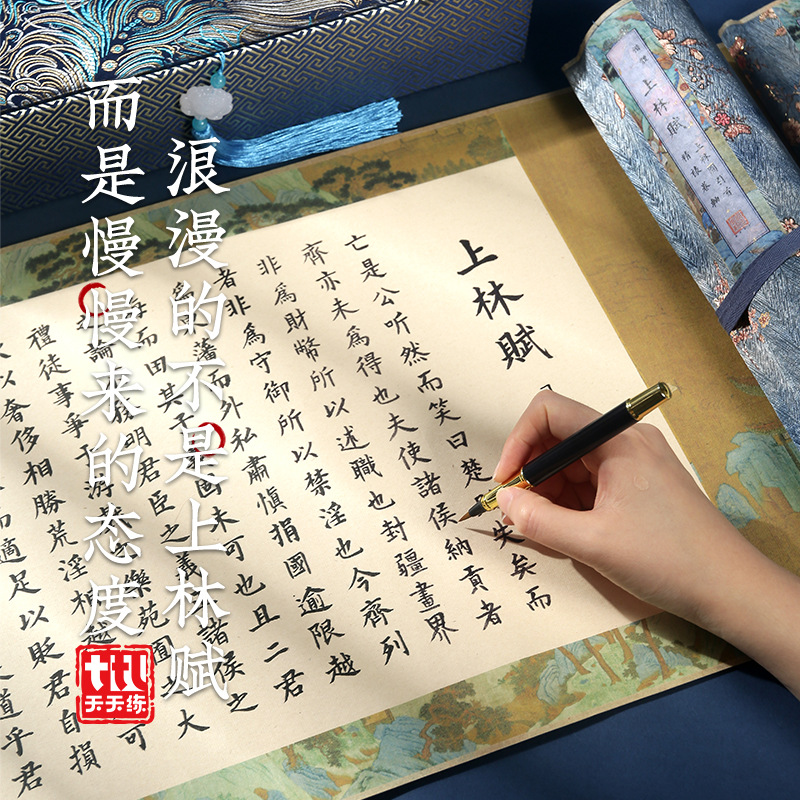 浪漫的不是上林赋
而是慢慢来的态度
天天练
上林賦
亡是公听然而笑曰楚失矣而
齊亦未為得也夫使諸侯納貢者
非為財幣所以述職也封疆畫界
者非為守御所以禁淫也今齊列
為藩而外私肅慎捐國逾限越
海而田其未可也且二君
論明君臣之義諸侯之
禮徒事爭於游樂苑囿之大
以奢侈相勝荒淫相越可
而適足以貶君自損
道乎君
上林賦